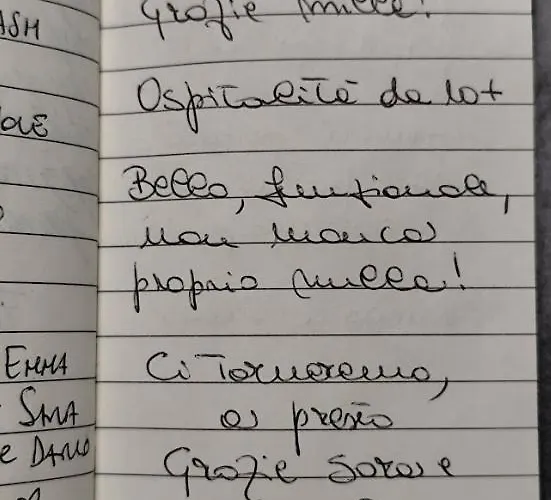 ASH
OLE
EMMA
SMA
e DANILO
Grazie mille!
Ospitalità da 10+
Bella, funzionale,
non manca
proprio nulla!
Ci Torneremo,
a presto
Grazie Sara e